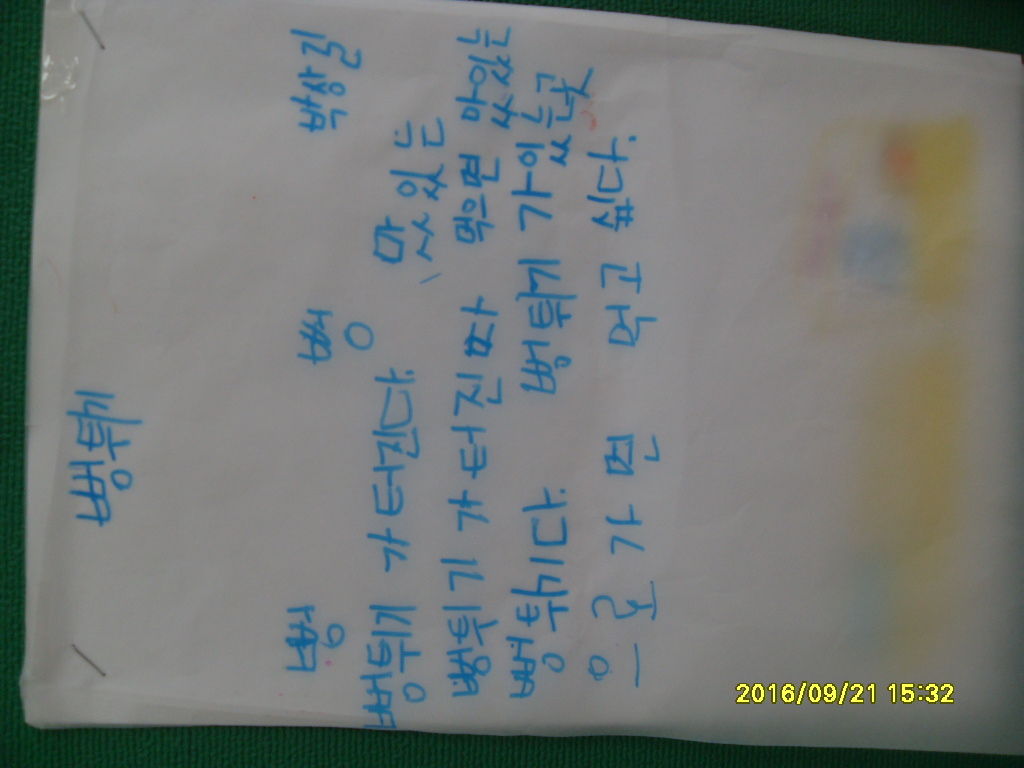 뻥튀기
뻥 뻥 박상길
뻥튀기 가 터진다. 맛있는
뻥튀기 가 터진 먹으면 맛있는
뻥튀기다. 뻥튀기 가 있는곳
으로 가 면 먹고 싶다.
2016/09/21 15:32